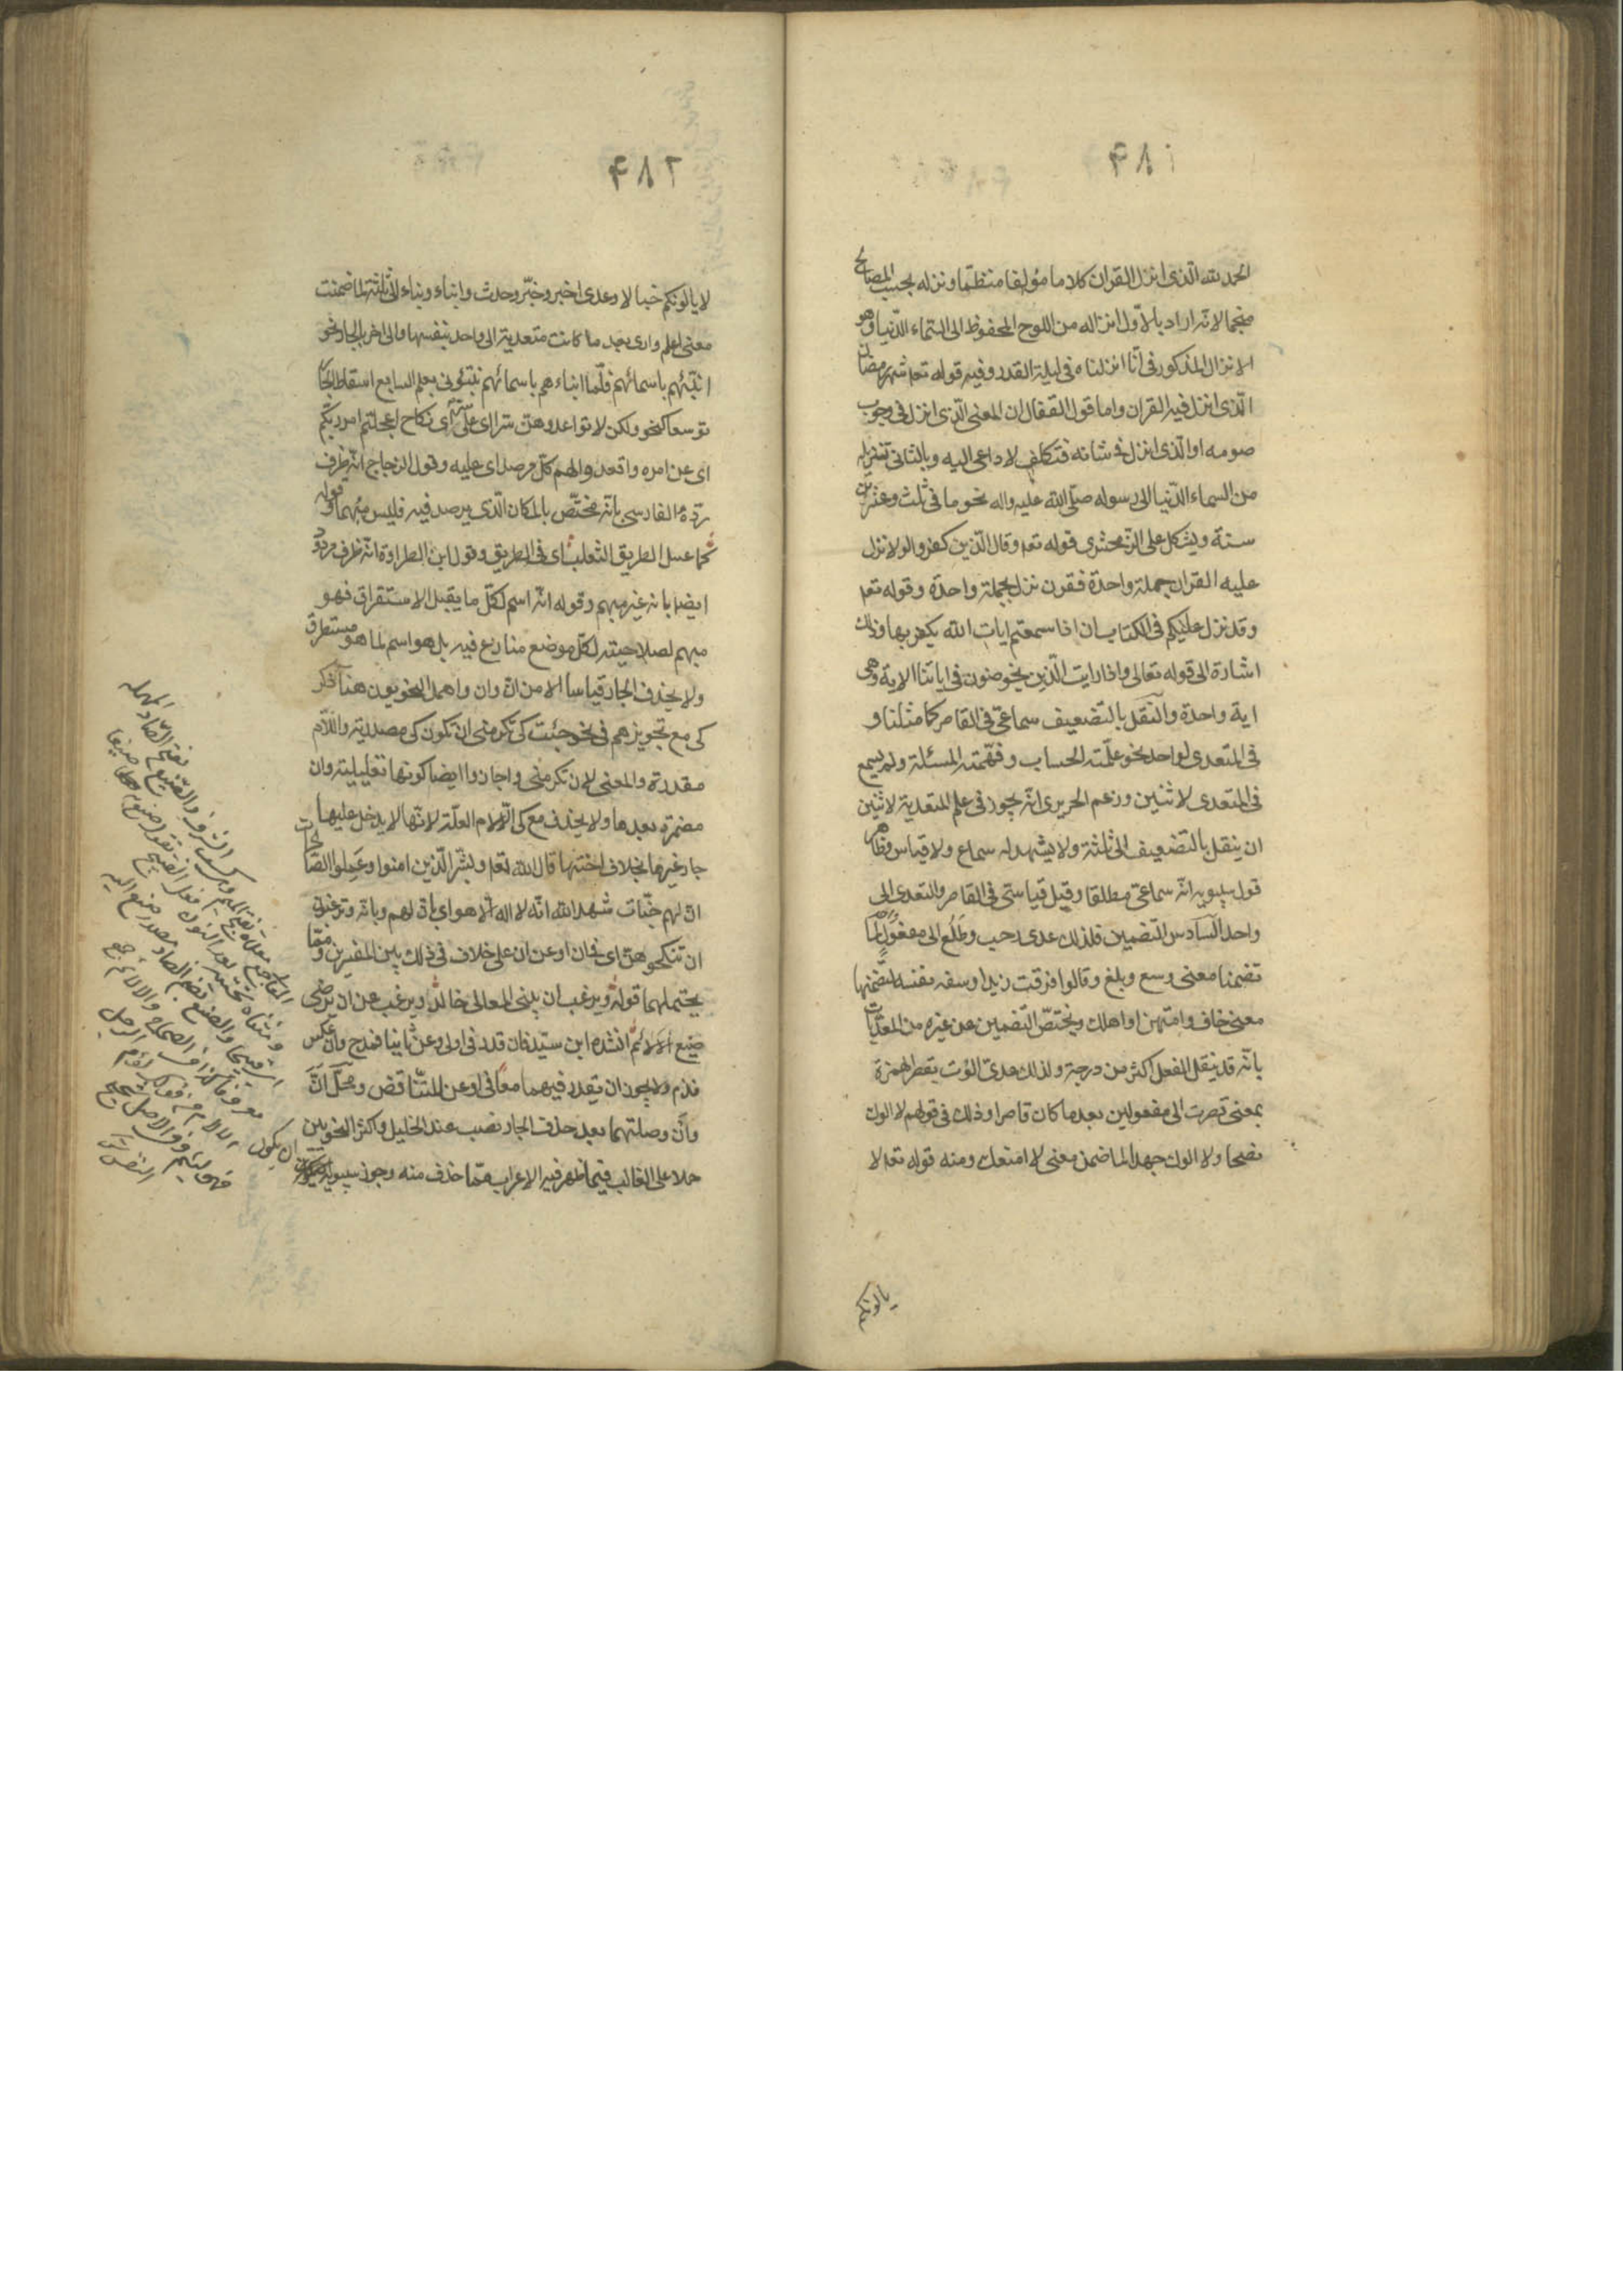 ۴۸۱
الحمد لله الذی انزل القران کلاما مؤلفا منتظما ونزله بحسب المصالح
منجما لانه اراد بالاول انزاله من اللوح المحفوظ الی السماء الدنیا وهو
الانزال المذکور فی انا انزلناه فی لیلة القدر وفیه قوله تعا شهر رمضان
الذی انزل فیه القران واما قول القفال ان المعنی الذی انزل فی وجوب
صومه او الذی انزل فی شانه فتکلف لا داعی الیه وبالثانی تنزیله
من السماء الدنیا الی رسوله صلی الله علیه واله نجوما فی ثلث وعشرین
سنة ویشکل علی الزمخشری قوله تعا وقال الذین کفروا لولا نزل
علیه القران جملة واحدة فقرن نزل بجملة واحدة وقوله تعا
وقد نزل علیکم فی الکتاب ان اذا سمعتم ایات الله یکفر بها وذلک
اشارة الی قوله تعالی واذا رایت الذین یخوضون فی ایاتنا الایة وهی
ایة واحدة والنقل بالتضعیف سماعی فی القاصر کما مثلنا و
فی المتعدی لواحد نحو علمته الحساب وفهمته المسئلة ولم یسمع
فی المتعدی لاثنین وزعم الحریری انه یجوز فی علم المتعدیة لاثنین
ان ینقل بالتضعیف الی ثلثة ولا یشهد له سماع ولا قیاس وظاهر
قول سیبویه انه سماعی مطلقا وقیل قیاسی فی القاصر والتعدی الی
واحد السادس التضمین فلذلک عدی رحب وطلع الی مفعول لما
تضمنا معنی وسع وبلغ وقالوا فرقت زیدا وسفه نفسه لتضمنها
معنی خاف وامتهن او اهلک ویختص التضمین عن غیره من المعدیات
بانه قد ینقل الفعل اکثر من درجة ولذلک عدی الوت بقصر الهمزة
بمعنی قصرت الی مفعولین بعد ما کان قاصرا وذلک فی قولهم لا الوک
نصحا ولا الوک جهدا لما ضمن معنی لا امنعک ومنه قوله تعا لا
یالونکم
۴۸۲
لا یالونکم خبالا وعدی اخبر وخبر وحدث وانباء ونباء الی ثلثة لما ضمنت
معنی اعلم واری بعد ما کانت متعدیة الی واحد بنفسها والی اخر بالجار نحو
انبئهم باسمائهم فلما انباءهم باسمائهم نبئونی بعلم السابع اسقاط الجار
توسعا نحو ولکن لا تواعدوهن سرا ای علی سر ای نکاح اعجلتم امر ربکم
ای عن امره واقعدوا لهم کل مرصد ای علیه وقول الزجاج انه ظرف
رده الفارسی بانه مختص بالمکان الذی یرصد فیه فلیس مبهما وقوله
کما عسل الطریق الثعلب ای فی الطریق وقول ابن الطراوة انه ظرف مردود
ایضا بانه غیر مبهم وقوله انه اسم لکل ما یقبل الاستقراق فهو
مبهم لصلاحیته لکل موضع منازع فیه بل هو اسم لما هو مستطرق
ولا یحذف الجار قیاسا الا من ان وان واهمل النحویون هنا ذکر
کی مع تجویزهم فی نحو جئت کی تکرمنی ان تکون کی مصدریة واللام
مقدرة والمعنی لان تکرمنی واجازوا ایضا کونها تعلیلیة وان
مضمرة بعدها ولا یحذف مع کی الا لام العلة لانها لا یدخل علیها
جار غیرها بخلاف اختها قال الله تعا وبشر الذین امنوا وعملوا الصالحات
ان لهم جنات شهد الله انه لا اله الا هو ای بان لهم وبانه وترغبون
ان تنکحوهن ای فی ان او عن ان علی خلاف فی ذلک بین المفسرین ومما
یحتملهما قوله ویرغب ان یبنی المعالی خالد ویرغب عن ان یرضی
صنیع الالائم انشده ابن سید فان قدر فی اولا وعن ثانیا فمدح وان عکس
فذم ولا یجوز ان یقدر فیهما معا فی او عن للتناقض ومحل ان
وان وصلتهما بعد حذف الجار نصب عند الخلیل واکثر النحویین
حملا علی الغالب فیما ظهر فیه الاعراب مما حذف منه وجوز سیبویه ان یکون